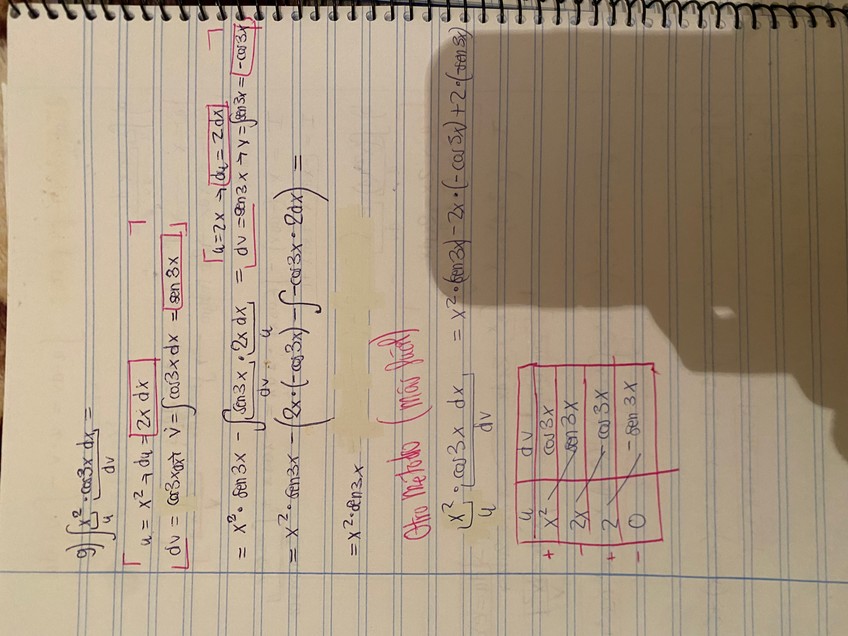 9) ∫ x² · cos3x dx =
u dv
u = x² → du = 2x dx
dv = cos3x dx → v = ∫cos3x dx = sen 3x
= x² · sen 3x - ∫ sen 3x · 2x dx =
dv u
u = 2x → du = 2 dx
dv = sen 3x → v = ∫sen 3x = -cos3x
= x² · sen 3x - (2x · (-cos3x) - ∫ -cos3x · 2dx) =
= x² · sen 3x
Otro método (más fácil)
x² · cos3x dx = x² · (sen 3x) - 2x · (-cos 3x) + 2 · (-sen 3x)
u dv
u dv
+ x² cos3x
- 2x sen 3x
+ 2 - cos 3x
- 0 - sen 3x